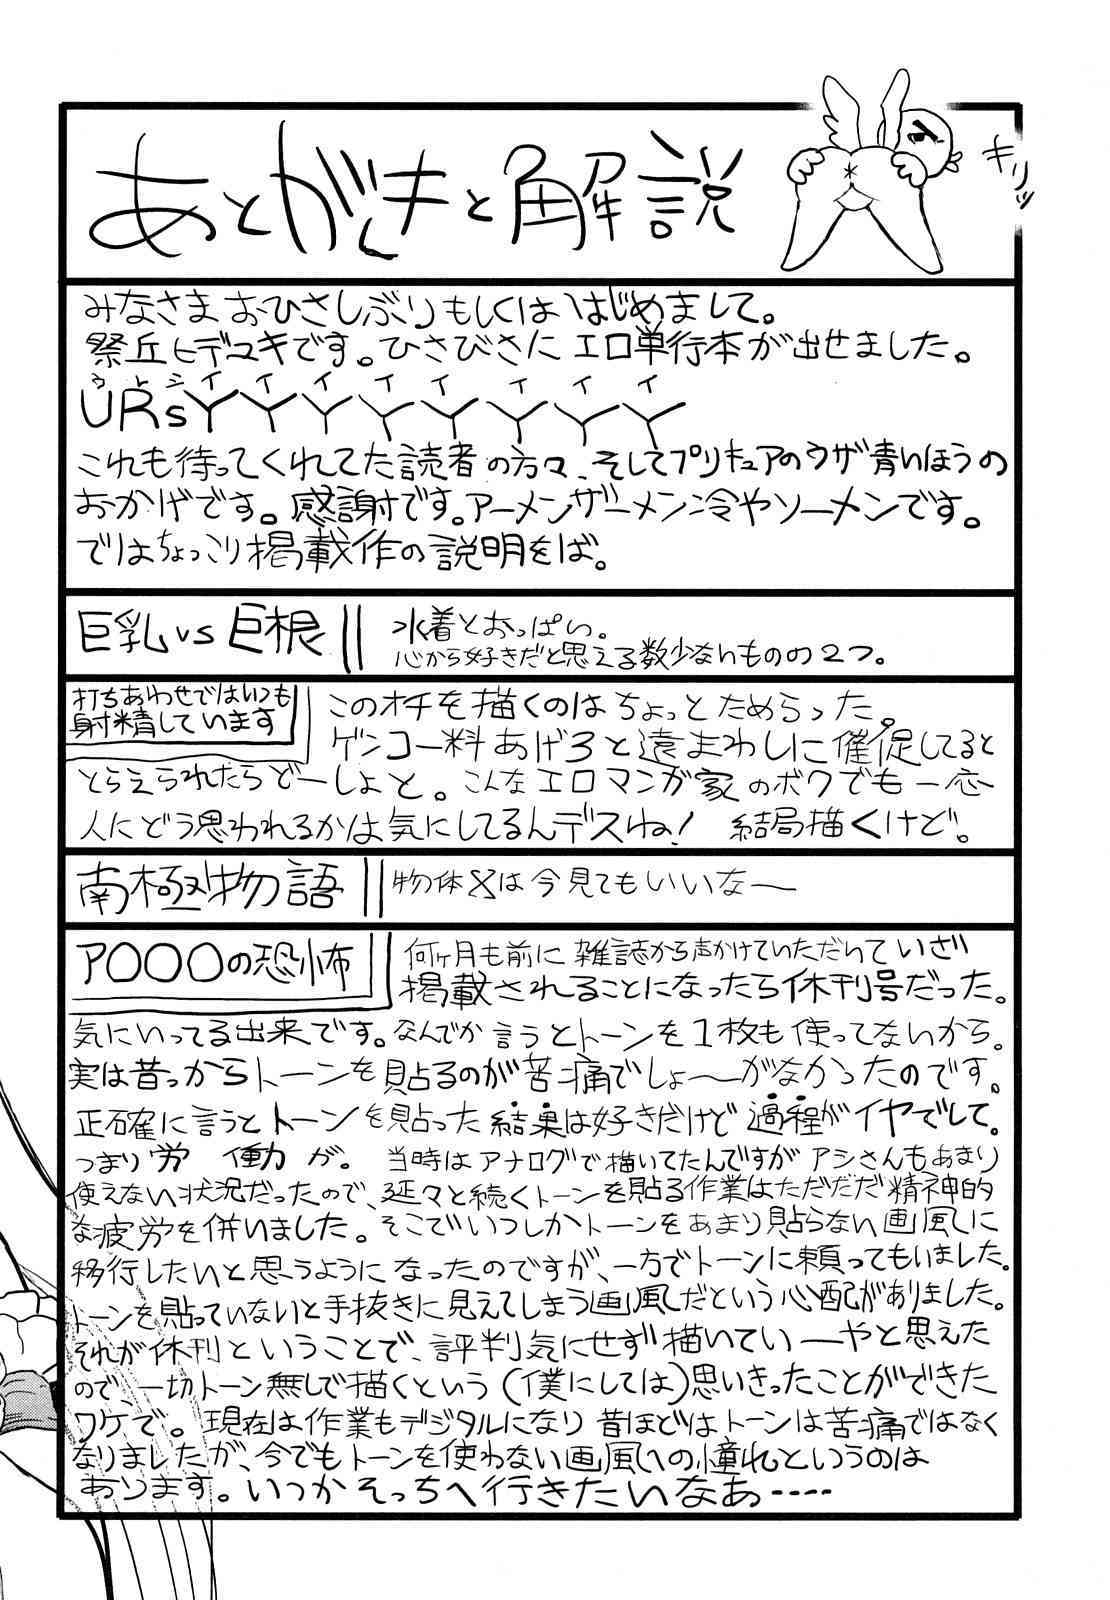 あとがきと解説
キリッ
みなさまおひさしぶりもしくははじめまして。
祭丘ヒデユキです。ひさびさにエロ単行本が出せました。
うれシイイイイイイイイ
URsYYYYYYYY
これも待ってくれてた読者の方々、そしてプリキュアのウザ青いほうの
おかげです。感謝です。アーメンザーメン冷やソーメンです。
ではちょっこり掲載作の説明をば。
巨乳vs巨根
水着とおっぱい。
心から好きだと思える数少ないものの2つ。
打ちあわせではいつも
射精しています
このオチを描くのはちょっとためらった。
ゲンコー料あげろと遠まわしに催促してると
とらえられたらどーしよと。こんなエロマンガ家のボクでも一応
人にどう思われるかは気にしてるんデスわね! 結局描くけど。
南極物語
物体Xは今見てもいいなー
ア〇〇〇の恐怖
何ヶ月も前に雑誌から声かけていただいていざ
掲載されることになったら休刊号だった。
気にいってる出来です。なんでか言うとトーンを1枚も使ってないから。
実は昔っからトーンを貼るのが苦痛でしょ〜がなかったのです。
正確に言うとトーンを貼った結果は好きだけど過程がイヤでして。
つまり労働が。当時はアナログで描いてたんですがアシさんもあまり
使えない状況だったので、延々と続くトーンを貼る作業はただただ精神的
な疲労を併いました。そこでいつしかトーンをあまり貼らない画風に
移行したいと思うようになったのですが、一方でトーンに頼ってもいました。
トーンを貼っていないと手抜きに見えてしまう画風だという心配がありました。
それが休刊ということで、評判気にせず描いていーやと思えた
ので一切トーン無しで描くという(僕にしては)思いきったことができた
ワケで。現在は作業もデジタルになり昔ほどはトーンは苦痛ではなく
なりましたが、今でもトーンを使わない画風への憧れというのは
あります。いつかそっちへ行きたいなあ・・・・・